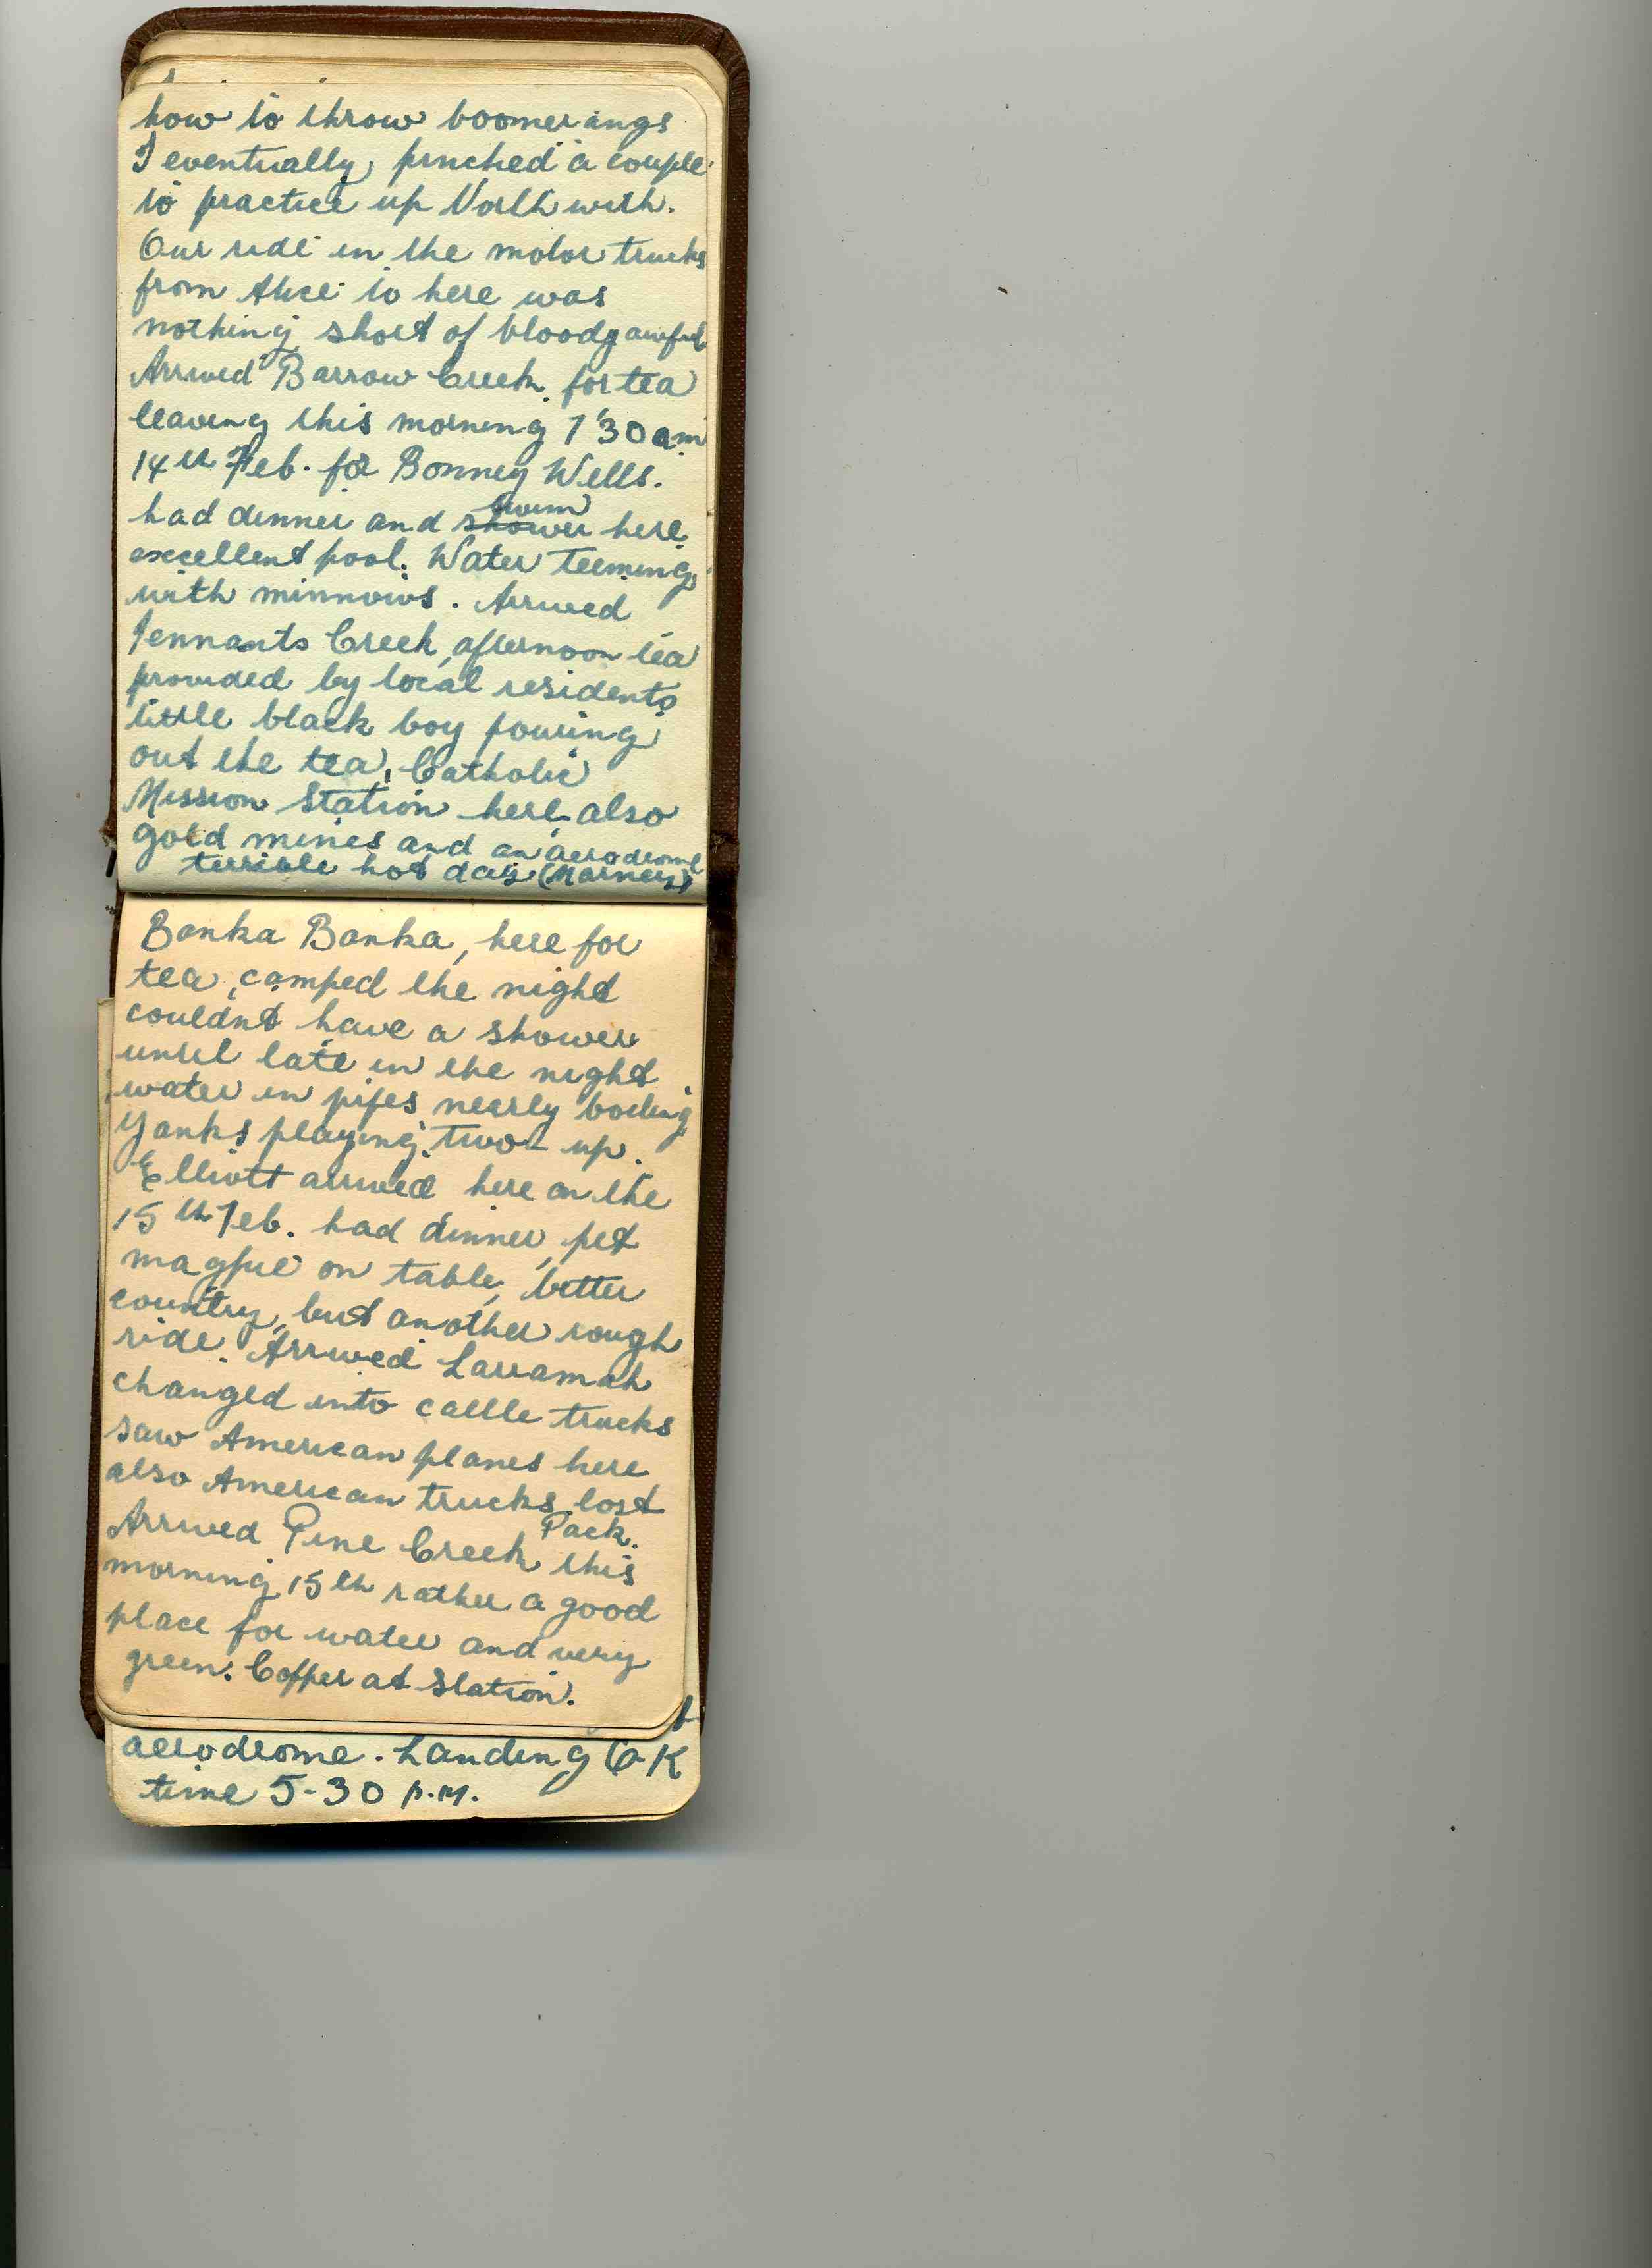 how to throw boomerangs
I eventually, pinched a couple
to practice up North with.
Our ride in the motor trucks
from Alice to here was
nothing short of bloody awful
Arrived Barrow Creek. for tea
leaving this morning 7'30 am
14th Feb. for Bonney Wells.
swim
had dinner and shower here
excellent pool. Water teeming
with minnows. Arrived
Tennants Creek, afternoon tea
provided by local residents
little black boy pouring
out the tea, Catholic
Mission Station here, also
gold mines and an aerodrome
terrible hot day
Banka Banka, here for
tea, camped the night
couldnt have a shower
until late in the night
water in pipes nearly boiling
Yanks playing two-up.
Elliott arrived here on the
15th Feb. had dinner, pet
magpie on table, better
country, but another rough
ride. Arrived Larramah
changed into cattle trucks
saw American planes here
also American trucks lost
Pack.
Arrived Pine Creek this
morning 15th rather a good
place for water and very
green. Copper at Station.
aerodrome. Landing OK
time 5-30 p.m.